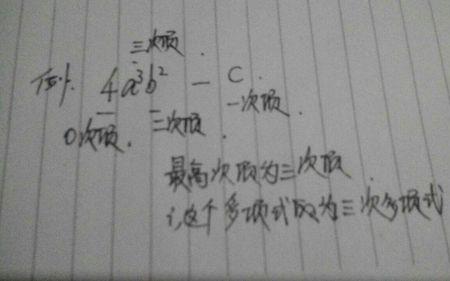 三次项.
例. 4a³b² - C.
0次项. 二次项. 一次项.
最高次项为三次项
∴这个多项式成为三次多项式